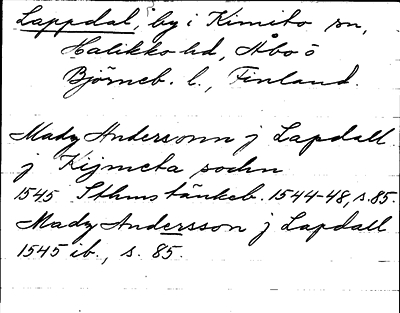 Lappdal, by i Kimito sn,
Halikko hd, Åbo o
Björneb. l., Finland.
Mady Andersonn j Lapdall
j Kijmeta sochn
1545 Sthms tänkeb. 1544-48, s. 85.
Mady Andersson j Lapdall
1545 ib., s. 85.